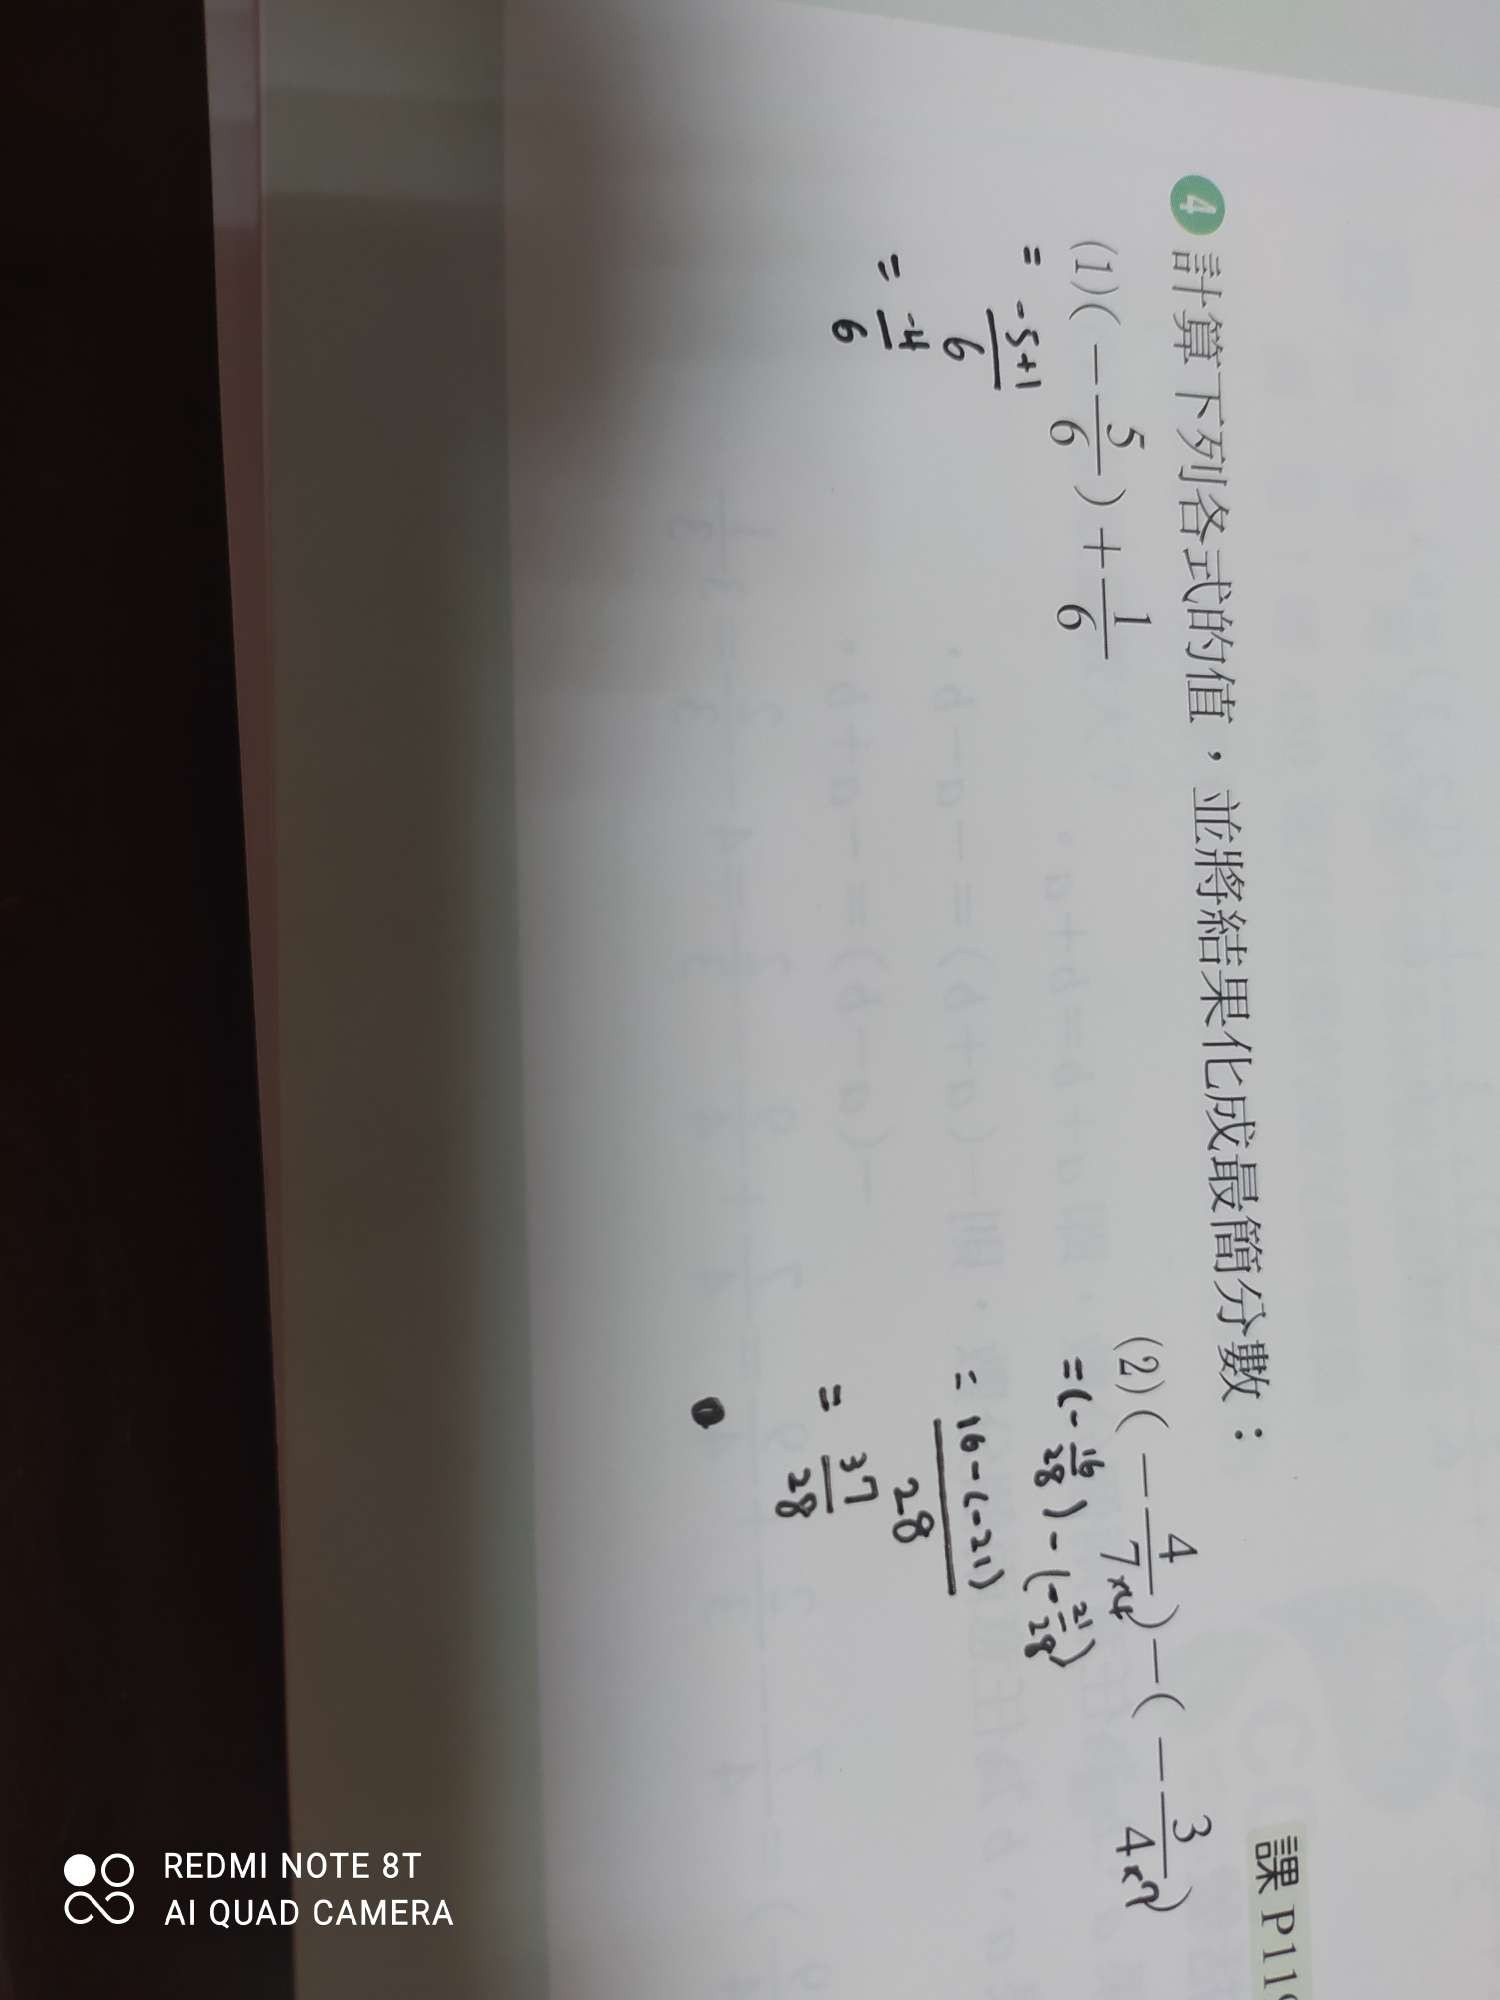 4 計算下列各式的值，並將結果化成最簡分數：
課 P119
(1)(-5/6)+1/6
= -5+1/6
= -4/6
(2)(-4/7×4)-(-3/4×7)
=(-16/28)-(-21/28)
= 16-(-21)/28
= 37/28
REDMI NOTE 8T
AI QUAD CAMERA